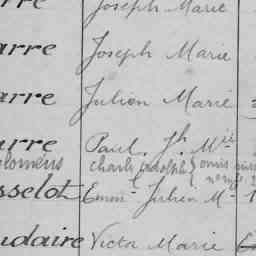 rre Joseph Marie
arre Joseph Marie
arre Julien Marie
arre Paul Jh Mie
lomens charles adolphe { omis
sselot Emm- Julien M-
udaire Victor Marie